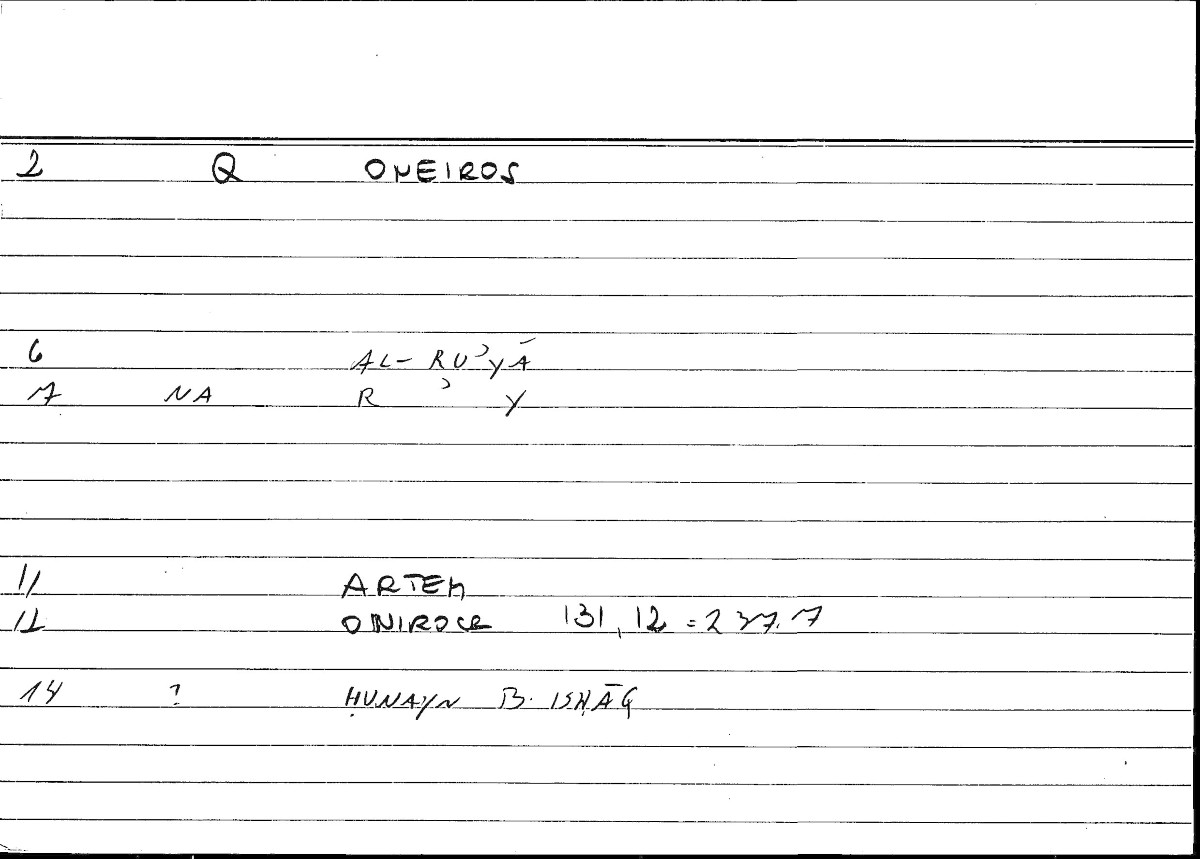 2 Q ONEIROS
6 AL-RUʾYĀ
7 NA R ʾ Y
11 ARTEM
12 ONIROCR 131,12 = 237.7
14 ? ḤUNAYN B. ISḤĀQ